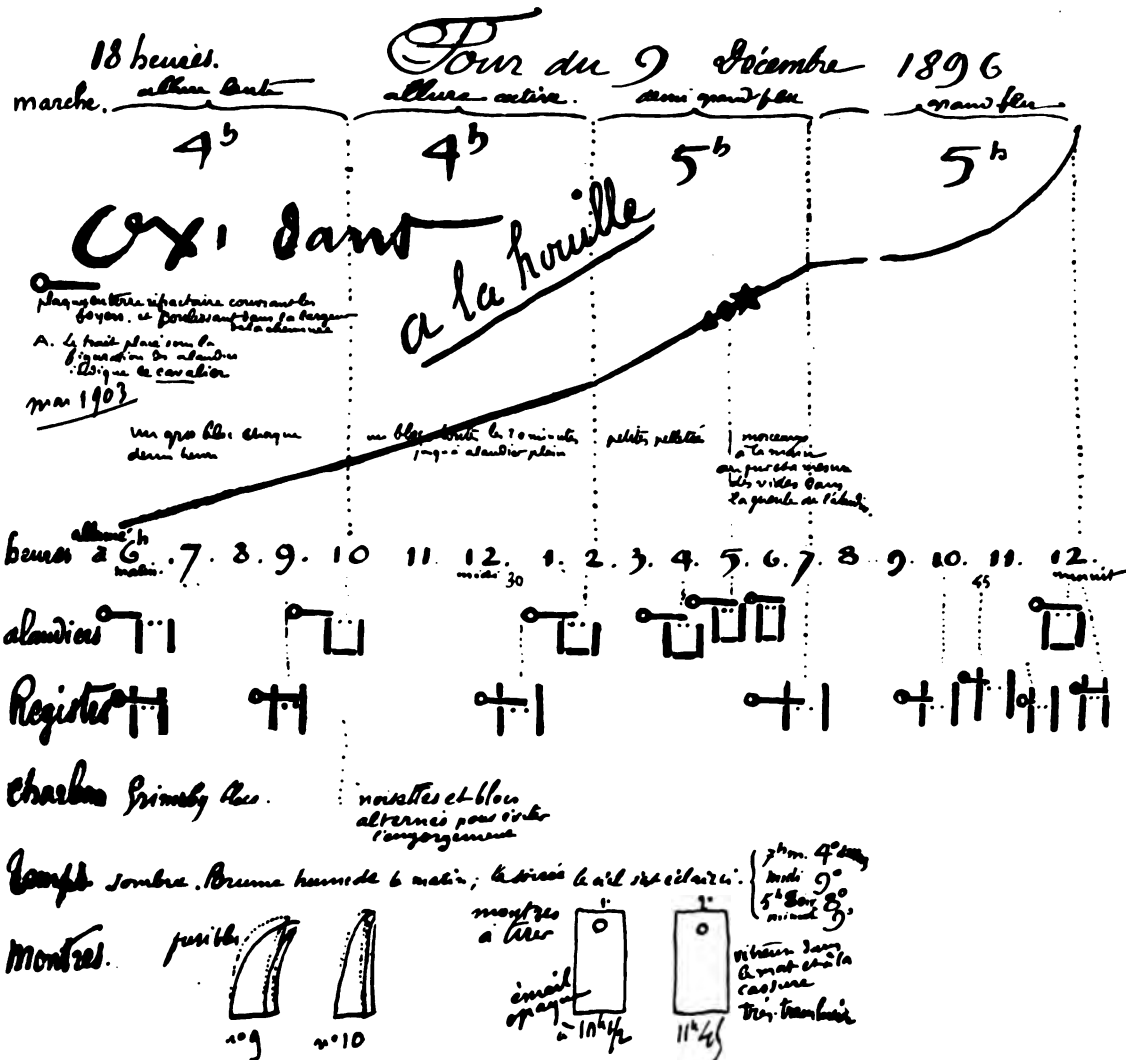 18 heures.
Four du 9 Décembre 1896
marche. allure lente allure active. demi grand feu grand feu
4h 4h 5h 5h
Oxidant
a la houille
plaques en terre réfractaire couvrant les
foyers. et coulissant dans la largeur
de la cheminée
A. Le trait placé sous la
figuration des alandiers
indique le cavalier
mai 1903
un gros bloc chaque
demi heure
un bloc toutes les 20 minutes
jusqu'à alandier plein
petites pelletées
morceaux
à la main
au fur et à mesure
des vides dans
la gueule de l'alandier.
allumé
heures à 6h 7. 8. 9. 10 11. 12. 1. 2. 3. 4. 5. 6. 7. 8 9. 10. 11. 12.
matin. midi 30 45 minuit
alandiers
Registre
Charbon Grimsby blocs.
noisettes et blocs
alternés pour éviter
l'engorgement
Temps sombre. Brume humide le matin; la soirée le ciel s'est éclairci.
7h m. 4°
midi 9°
5h soir 8°
minuit 9°
Montres. fusibles
n° 9 n° 10
montres
à tirer
émail
opaque
à 10h 1/2
11h 45
vitreux dans
le mat et à la
cassure
très translucide